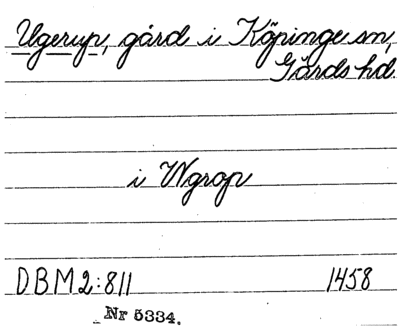 Ugerup, gård i Köpinge sn,
Gärds hd.
i Wgrop
DBM 2:811 1458
Nr 5334.